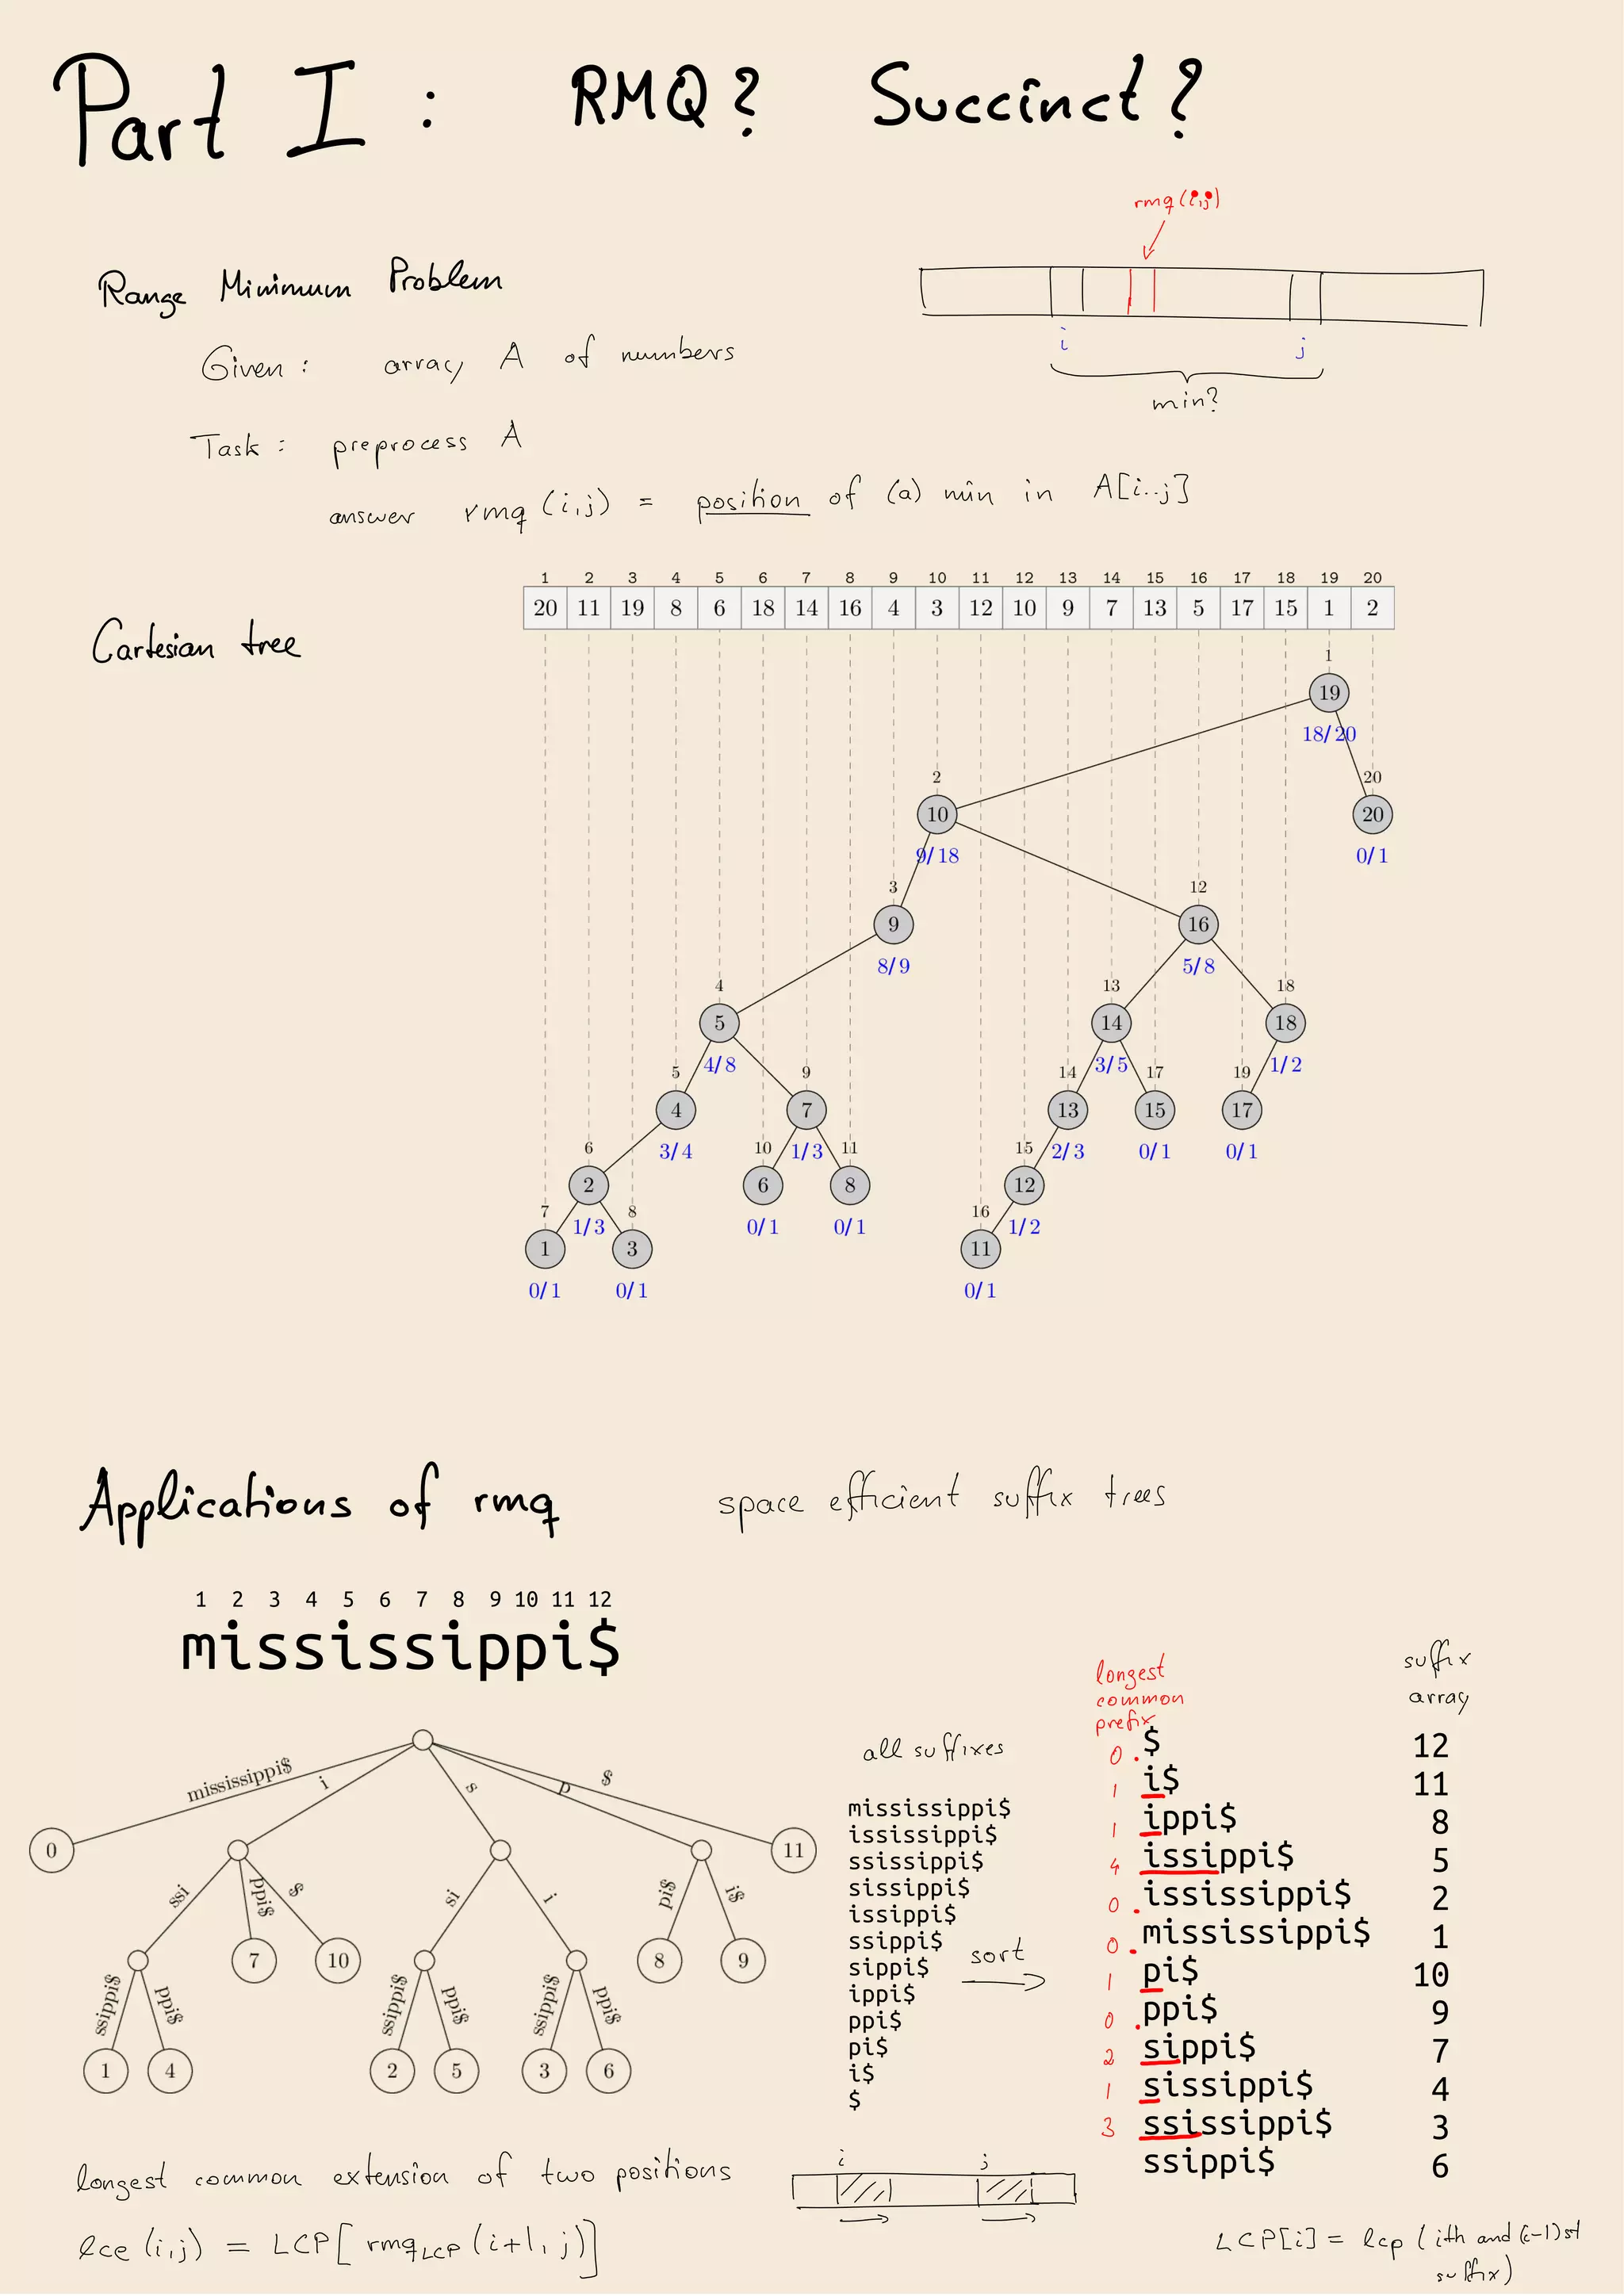 Part I : RMQ? Succinct?
rmq(i,j)
Range Minimum Problem
i j
Given : array A of numbers
min?
Task : preprocess A
answer rmq(i,j) = position of (a) min in A[i..j]
1 2 3 4 5 6 7 8 9 10 11 12 13 14 15 16 17 18 19 20
20 11 19 8 6 18 14 16 4 3 12 10 9 7 13 5 17 15 1 2
Cartesian tree
1
19
18/20
2 20
10 20
9/18 0/1
3 12
9 16
8/9 5/8
4 13 18
5 14 18
4/8 3/5 1/2
5 9 14 17 19
4 7 13 15 17
3/4 1/3 2/3 0/1 0/1
6 10 11 15
2 6 8 12
1/3 0/1 0/1 1/2
7 8 16
1 3 11
0/1 0/1 0/1
Applications of rmq space efficient suffix trees
1 2 3 4 5 6 7 8 9 10 11 12
mississippi$
mississippi$ i s p $
0 11
ssi ppi$ $ si i pi$ i$
7 10 8 9
ssippi$ ppi$ ssippi$ ppi$ ssippi$ ppi$
1 4 2 5 3 6
all suffixes
mississippi$
ississippi$
ssissippi$
sissippi$
issippi$
ssippi$
sippi$
ippi$
ppi$
pi$
i$
$
sort
longest
common
prefix
suffix
array
0 $ 12
1 i$ 11
1 ippi$ 8
4 issippi$ 5
0 ississippi$ 2
0 mississippi$ 1
1 pi$ 10
0 ppi$ 9
2 sippi$ 7
1 sissippi$ 4
3 ssissippi$ 3
ssippi$ 6
longest common extension of two positions
i j
lce(i,j) = LCP[rmq LCP (i+1, j)]
LCP[i] = lcp (ith and (i-1)st
suffix)